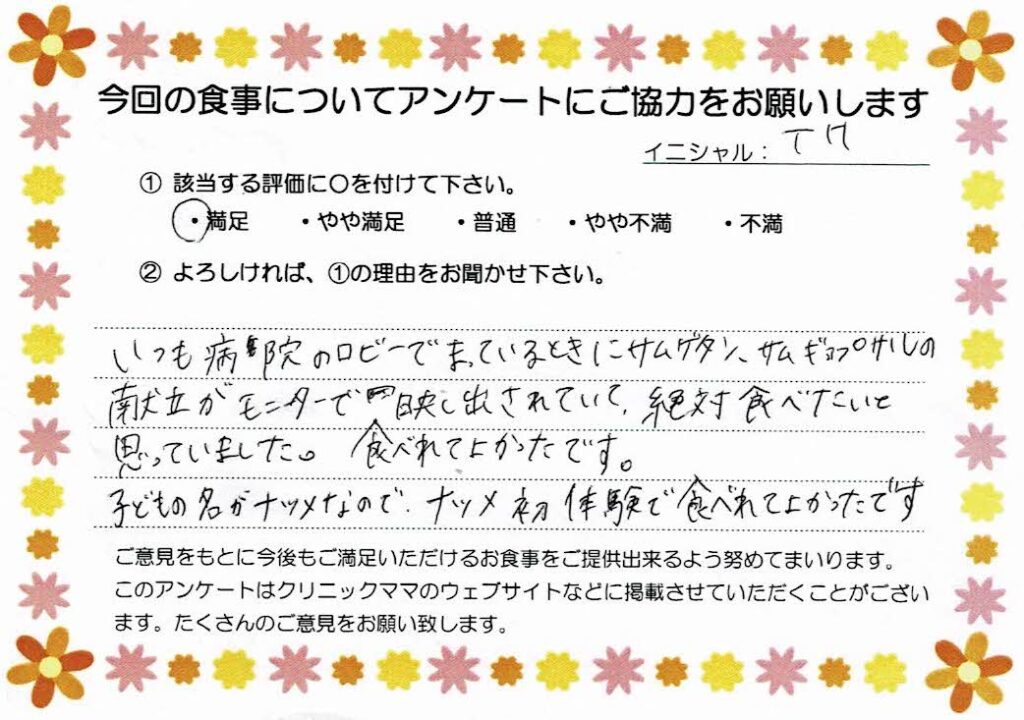 今回の食事についてアンケートにご協力をお願いします
イニシャル：
① 該当する評価に〇を付けて下さい。
・満足 ・やや満足 ・普通 ・やや不満 ・不満
② よろしければ、①の理由をお聞かせ下さい。
いつも病院のロビーでまっているときにサムゲタン、サムギョプサルの
献立がモニターで映し出されていて、絶対食べたいと
思っていました。食べれてよかったです。
子どもの名がナツメなので、ナツメ初体験で食べれてよかったです
ご意見をもとに今後もご満足いただけるお食事をご提供出来るよう努めてまいります。
このアンケートはクリニックママのウェブサイトなどに掲載させていただくことがござい
ます。たくさんのご意見をお願い致します。